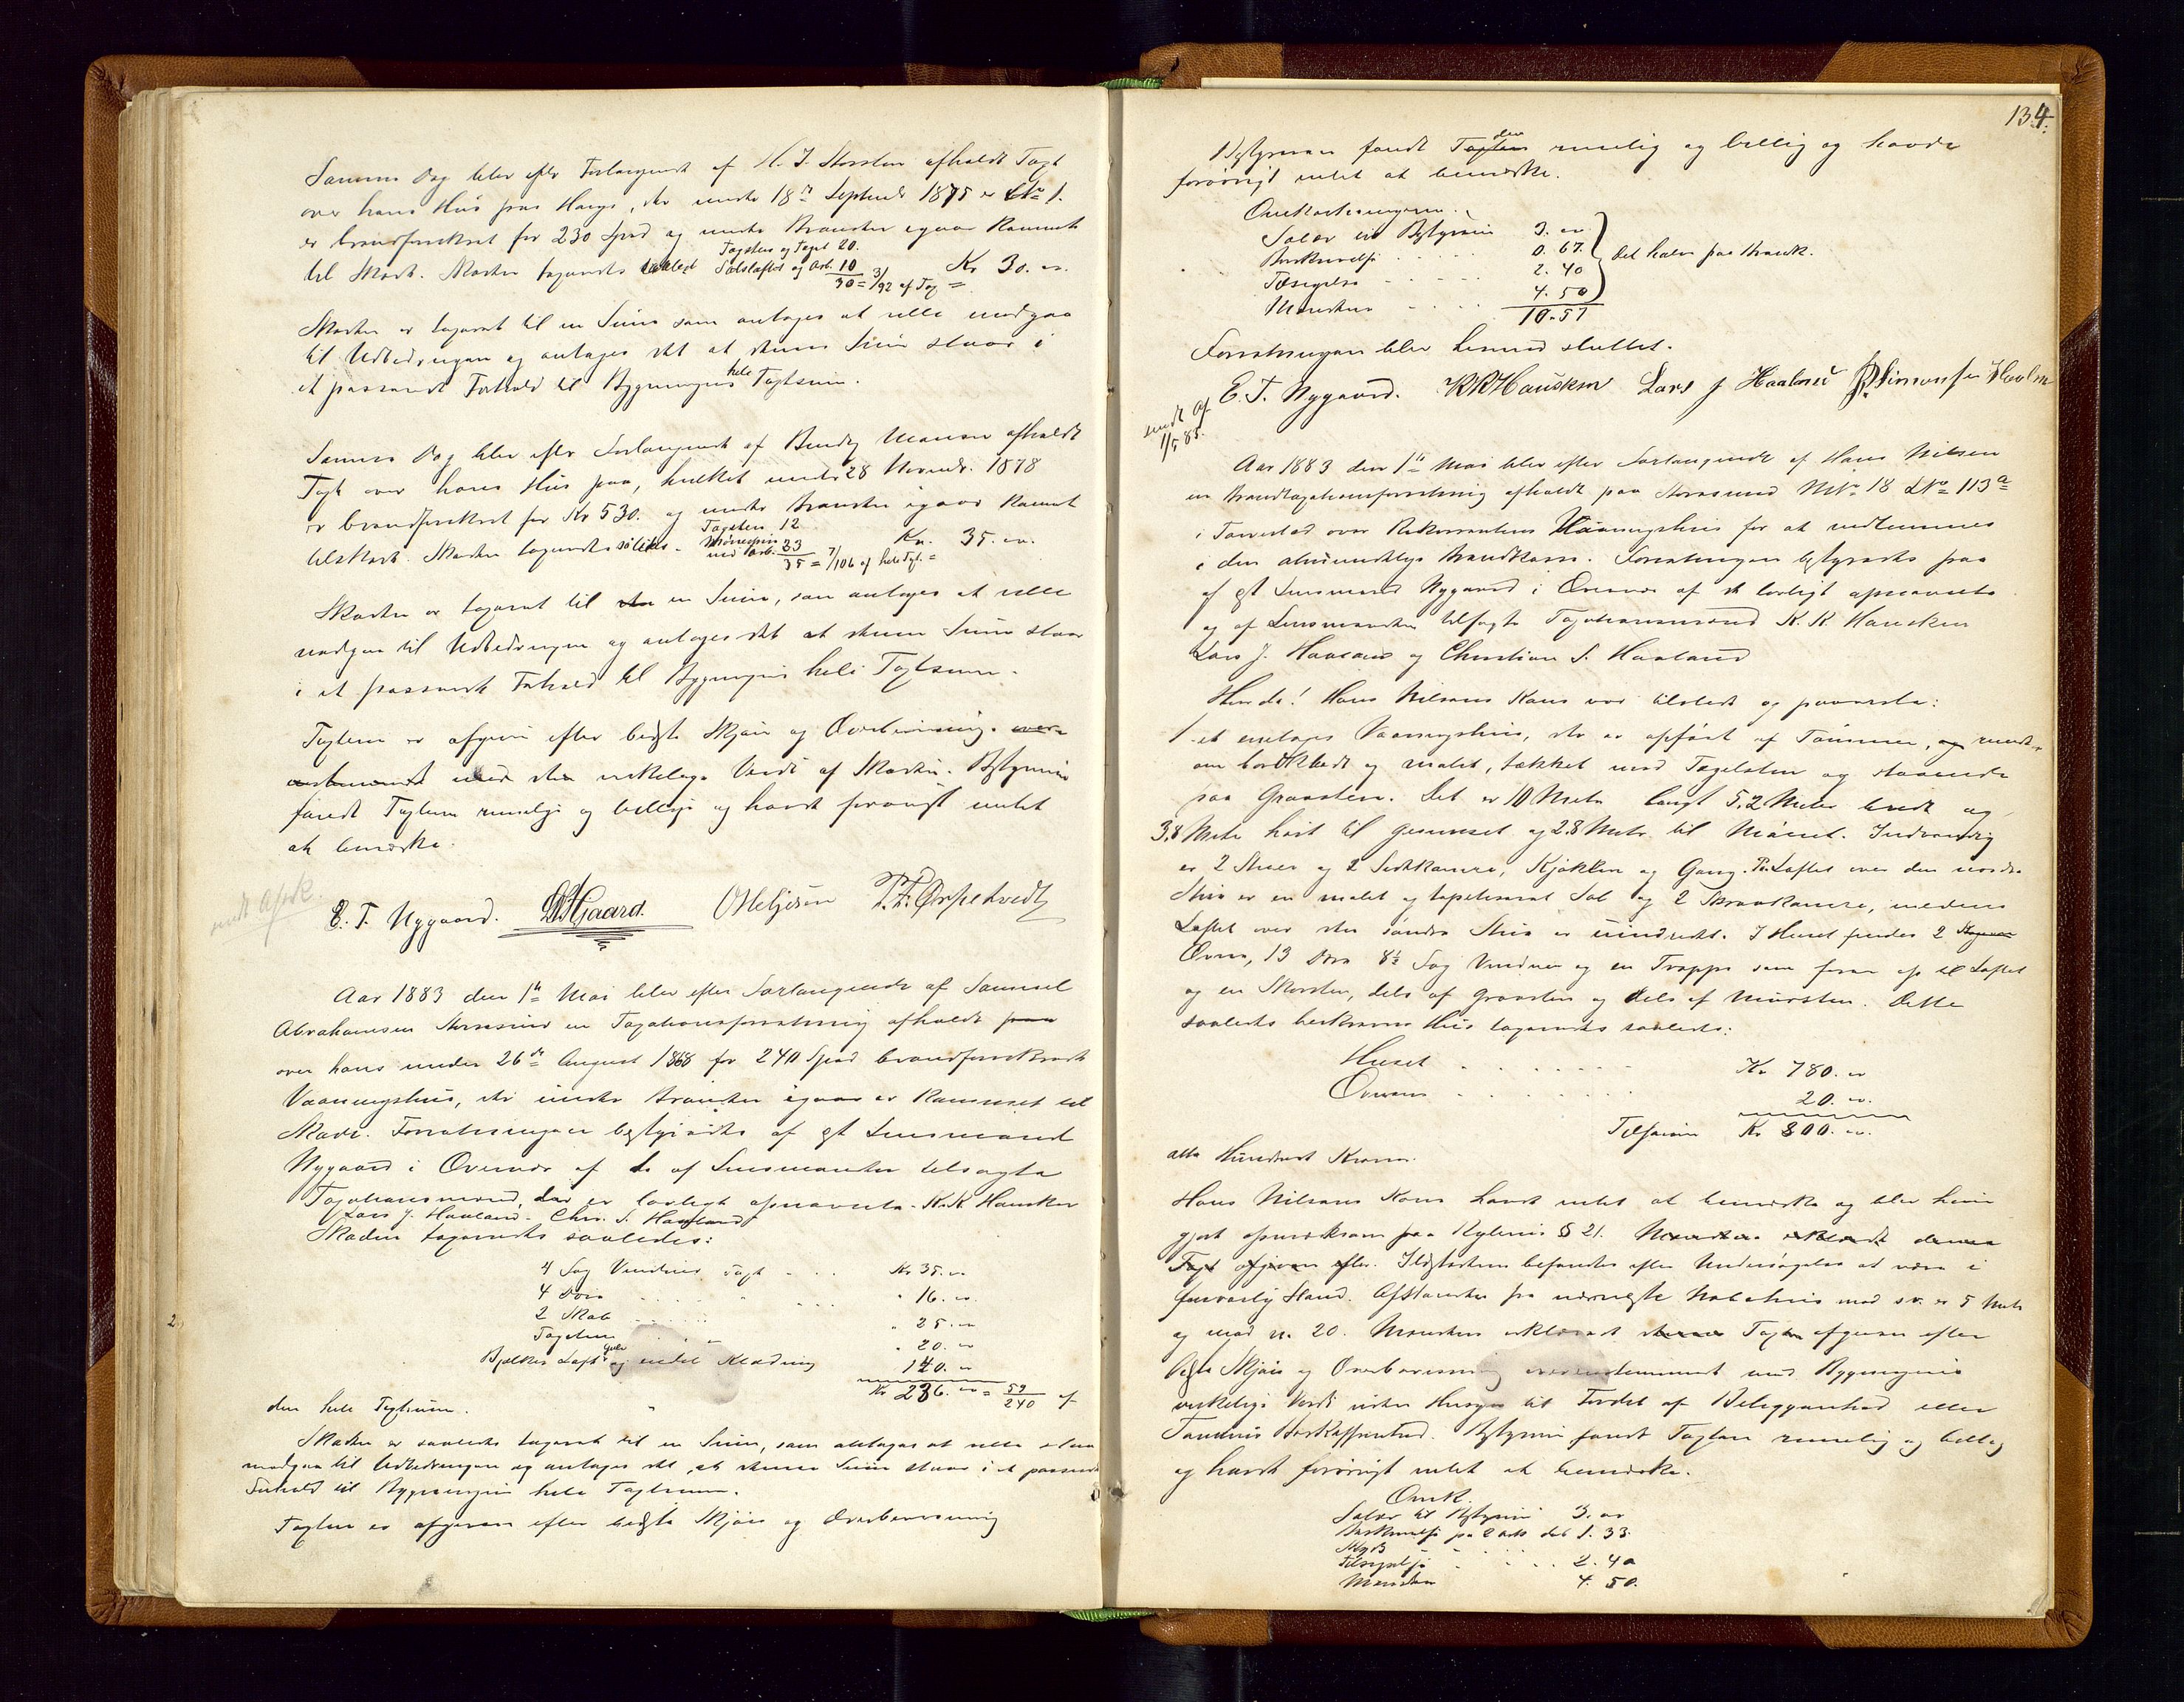 Samme Dag blev efter Forlangende af H. J. Storsten afholdt Taxt
over hans Hus paa Hauge, der under 18de Septembr 1875 Lno 1.
er brandforsikret for 230 Spd og under Branden igaar Rammet
til Skade. Skaden taxeredes saaledes
Tagsten og Taget 20.
og Arb. 10
30 = 3/92 af Tax = Kr 30. "
Skaden er taxeret til en Sum som antages at ville medgaa
til Udbedringen og antages det at denne Sum staar i
et passende Forhold til Bygningens hele Taxtsum.
Samme Dag blev efter Forlangende af Monsen afholdt
Taxt over hans Hus paa, hvilket under 28 Novembr. 1878
er brandforsikret for Kr 530. og under Branden igaar Ramt
til Skade. Skaden taxeredes således.
Tagsten 12
Mønespån
med Arb. 23
35 = 7/106 af hele Taxt. = Kr. 35. "
Skaden er taxeret til en Sum, som antages at ville
medgaa til Udbedringen og antages det at denne Sum staar
i et passende Forhold til Bygningens hele Taxtsum.
Taxten er afgiven efter bedste Skjøn og Overbevisning
med den virkelige Værdi af Skaden. Bestyreren
fandt Taxten rimelig og billig og havde forøvrigt intet
at bemærke.
sendt Afsk.
E. T. Nygaard. Gaard. O Heljesen
Aar 1883 den 1ste Mai blev efter Forlangende af Samuel
Abrahamsen Storesund en Taxationsforretning afholdt paa
over hans under 26de August 1868 for 240 Spd brandforsikrede
Vaaningshus, der under Branden igaar er Rammet til
Skade. Forretningen bestyredes af cst Lensmand
Nygaard i Overvær af de af Lensmanden tilsagte
Taxationsmænd, der er lovligt opnævnte. K. K. Hausken
Lars J. Haaland. Chr. S. Haaland
Skaden taxeredes saaledes:
4 Fag Vinduer Taxt . . . Kr 35. "
4 Døre . . . " 16. "
2 Skab . . . " 25. "
Tagsten . . . " 20. "
Bjælker Loft Gulv og endel Klædning 140. "
Kr 236. " = 59/240 af
den hele Taxtsum.
Skaden er saaledes taxeret til en Sum, som antages at ville
medgaa til Udbedringen og antages det, at denne Sum staar i et passende
Forhold til Bygningens hele Taxtsum.
Taxten er afgiven efter bedste Skjøn og Overbevisning
134.
Bestyreren fandt Taxten den rimelig og billig og havde
forøvrigt intet at bemærke.
Omkostningerne.
Salær til Bestyreren 3. "
Beskrivelse . . . 0. 67.
Tilsigelse . . . 2. 40
Mændene . . . 4. 50
10.57
Det halve paa Brandk.
Forretningen blev hermed sluttet.
E. T. Nygaard. KKHausken Lars J Haaland
sendt Af
1/5 83.
Aar 1883 den 1ste Mai blev efter Forlangende af Hans Nilsen
en Brandtaxationsforretning afholdt paa Storesund MNo 18 LNo 113a
i Torvestad over Rekvirentens Vaaningshus for at indlemmes
i den almindelige Brandkasse. Forretningen bestyredes paa
af cst Lensmand Nygaard i Overvær af de lovligt opnævnte
og af Lensmanden tilsagte Taxationsmænd K. K. Hausken
Lars J. Haaland og Christian S. Haaland
Hans Nilsens Kone var tilstede og paaviste:
1 et enetages Vaaningshus, der er opført af Tømmer, og rundt
om bordklædt og malet, tækket med Tegelsten og staaende
paa Graasten. Det er 10 Meter langt 5,2 Meter bredt og
3,8 Meter høit til Gesimset og 2.8 Meter til Mønet. Indvendig
er 2 Stuer og 2 Sidekamre, Kjøkken og Gang. Paa Loftet over den nordre
Stue er en malet og tapetseret Sal og 2 Skraakamre, medens
Loftet over den søndre Stue er uindredt. I Huset findes 2
Ovne, 13 Døre 8½ Fag Vinduer og en Trappe som fører op til Loftet
og en Skorsten, dels af Graasten og dels af Mursten. Dette
saaledes beskrevne Hus taxeredes saaledes:
Huset . . . . . . . Kr 780. "
Ovnene . . . . . . 20. "
Tilsammen Kr 800. "
otte Hundrede Kroner.
Hans Nilsens Kone havde intet at bemærke og blev hun
gjort opmærksom paa Lovens § 21. Mændene erklærede denne
Taxt afgiven efter. Ildstederne befandtes efter Undersøgelse at være i
forsvarlig Stand. Afstanden fra nærmeste Nabohus mod sv. er 5 Meter
og mod n. 20. Mændene erklærede denne Taxten afgiven efter
bedste Skjøn og Overbevisning overensstemmende med Bygningens
virkelige Værdi uden Hensyn til Fordel af Beliggenhed eller
Tomtens Beskaffenhed. Bestyreren fandt Taxten rimelig og billig
og havde forøvrigt intet at bemærke.
Omk.
Salær til Bestyreren 3. "
Beskrivelse pa 2 Ark det 1. 33.
Skyds
Tilsigelse . . . . 2. 40
Mændene 4. 50.